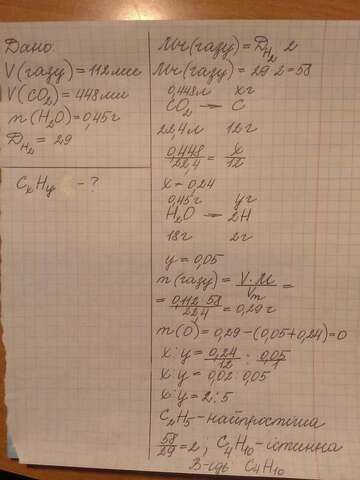 Дано
V(газу) = 112 мл
V(CO₂) = 448 мл
m(H₂O) = 0,45 г
D_H₂ = 29
CₓHᵧ - ?
Mr(газу) = D_H₂ 2
Mr(газу) = 29·2 = 58
0,448л xг
CO₂ — C
22,4л 12г
0,448/22,4 = x/12
x = 0,24
0,45г yг
H₂O — 2H
18г 2г
y = 0,05
m(газу) = V·M/Vm =
= 0,112·58/22,4 = 0,29г
m(O) = 0,29-(0,05+0,24)=0
x:y = 0,24/12 : 0,05/1
x:y = 0,02:0,05
x:y = 2:5
C₂H₅ - найпростіша
58/29 = 2; C₄H₁₀ - істинна
В-дь C₄H₁₀